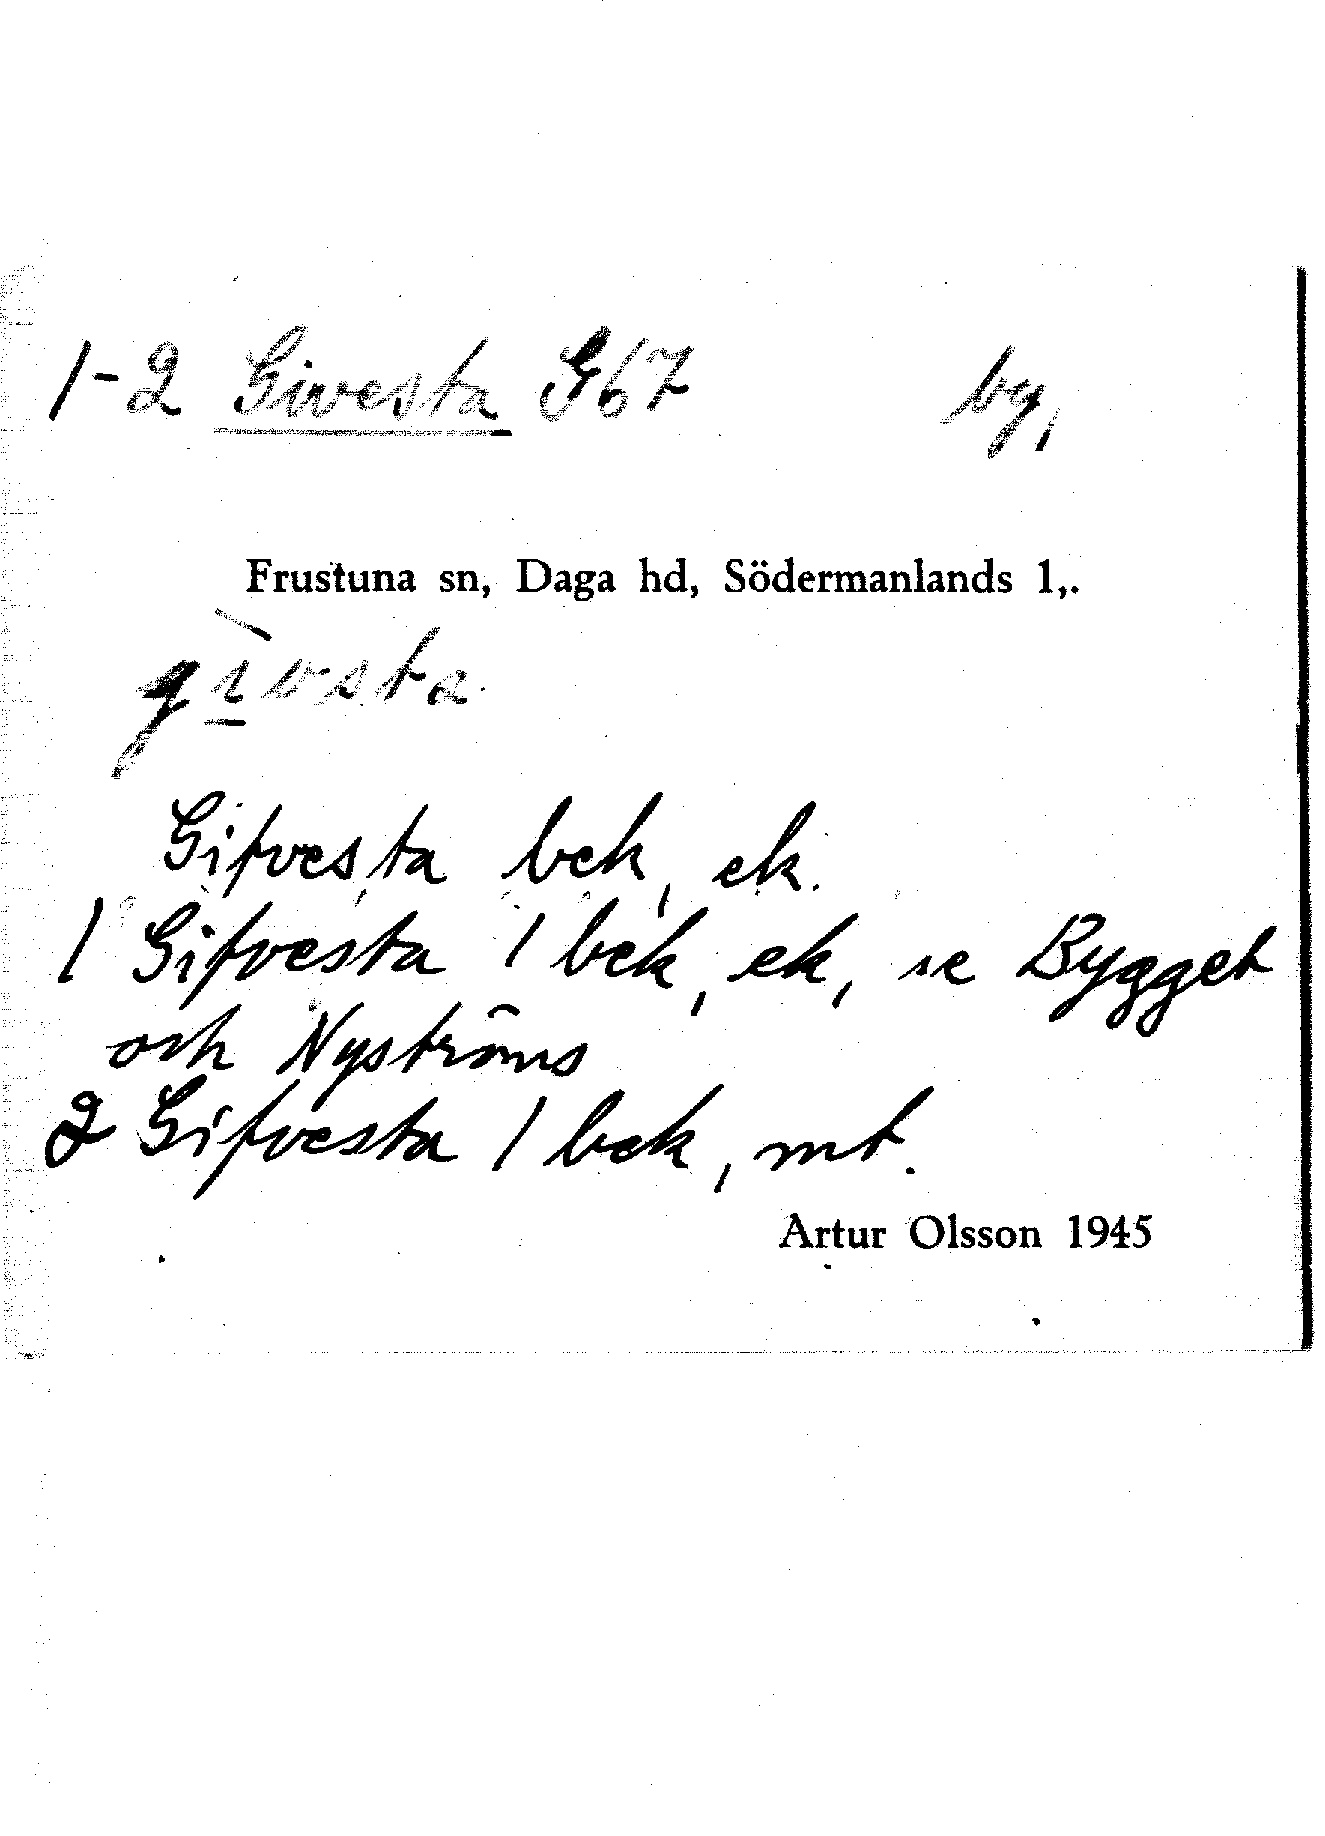 1-2 Givesta G67 by,
Frustuna sn, Daga hd, Södermanlands l,.
gìvsta
Gifvesta bek, ek.
1 Gifvesta 1 bek, ek, se Bygget
och Nyströms
2 Gifvesta 1 bek, mt.
Artur Olsson 1945